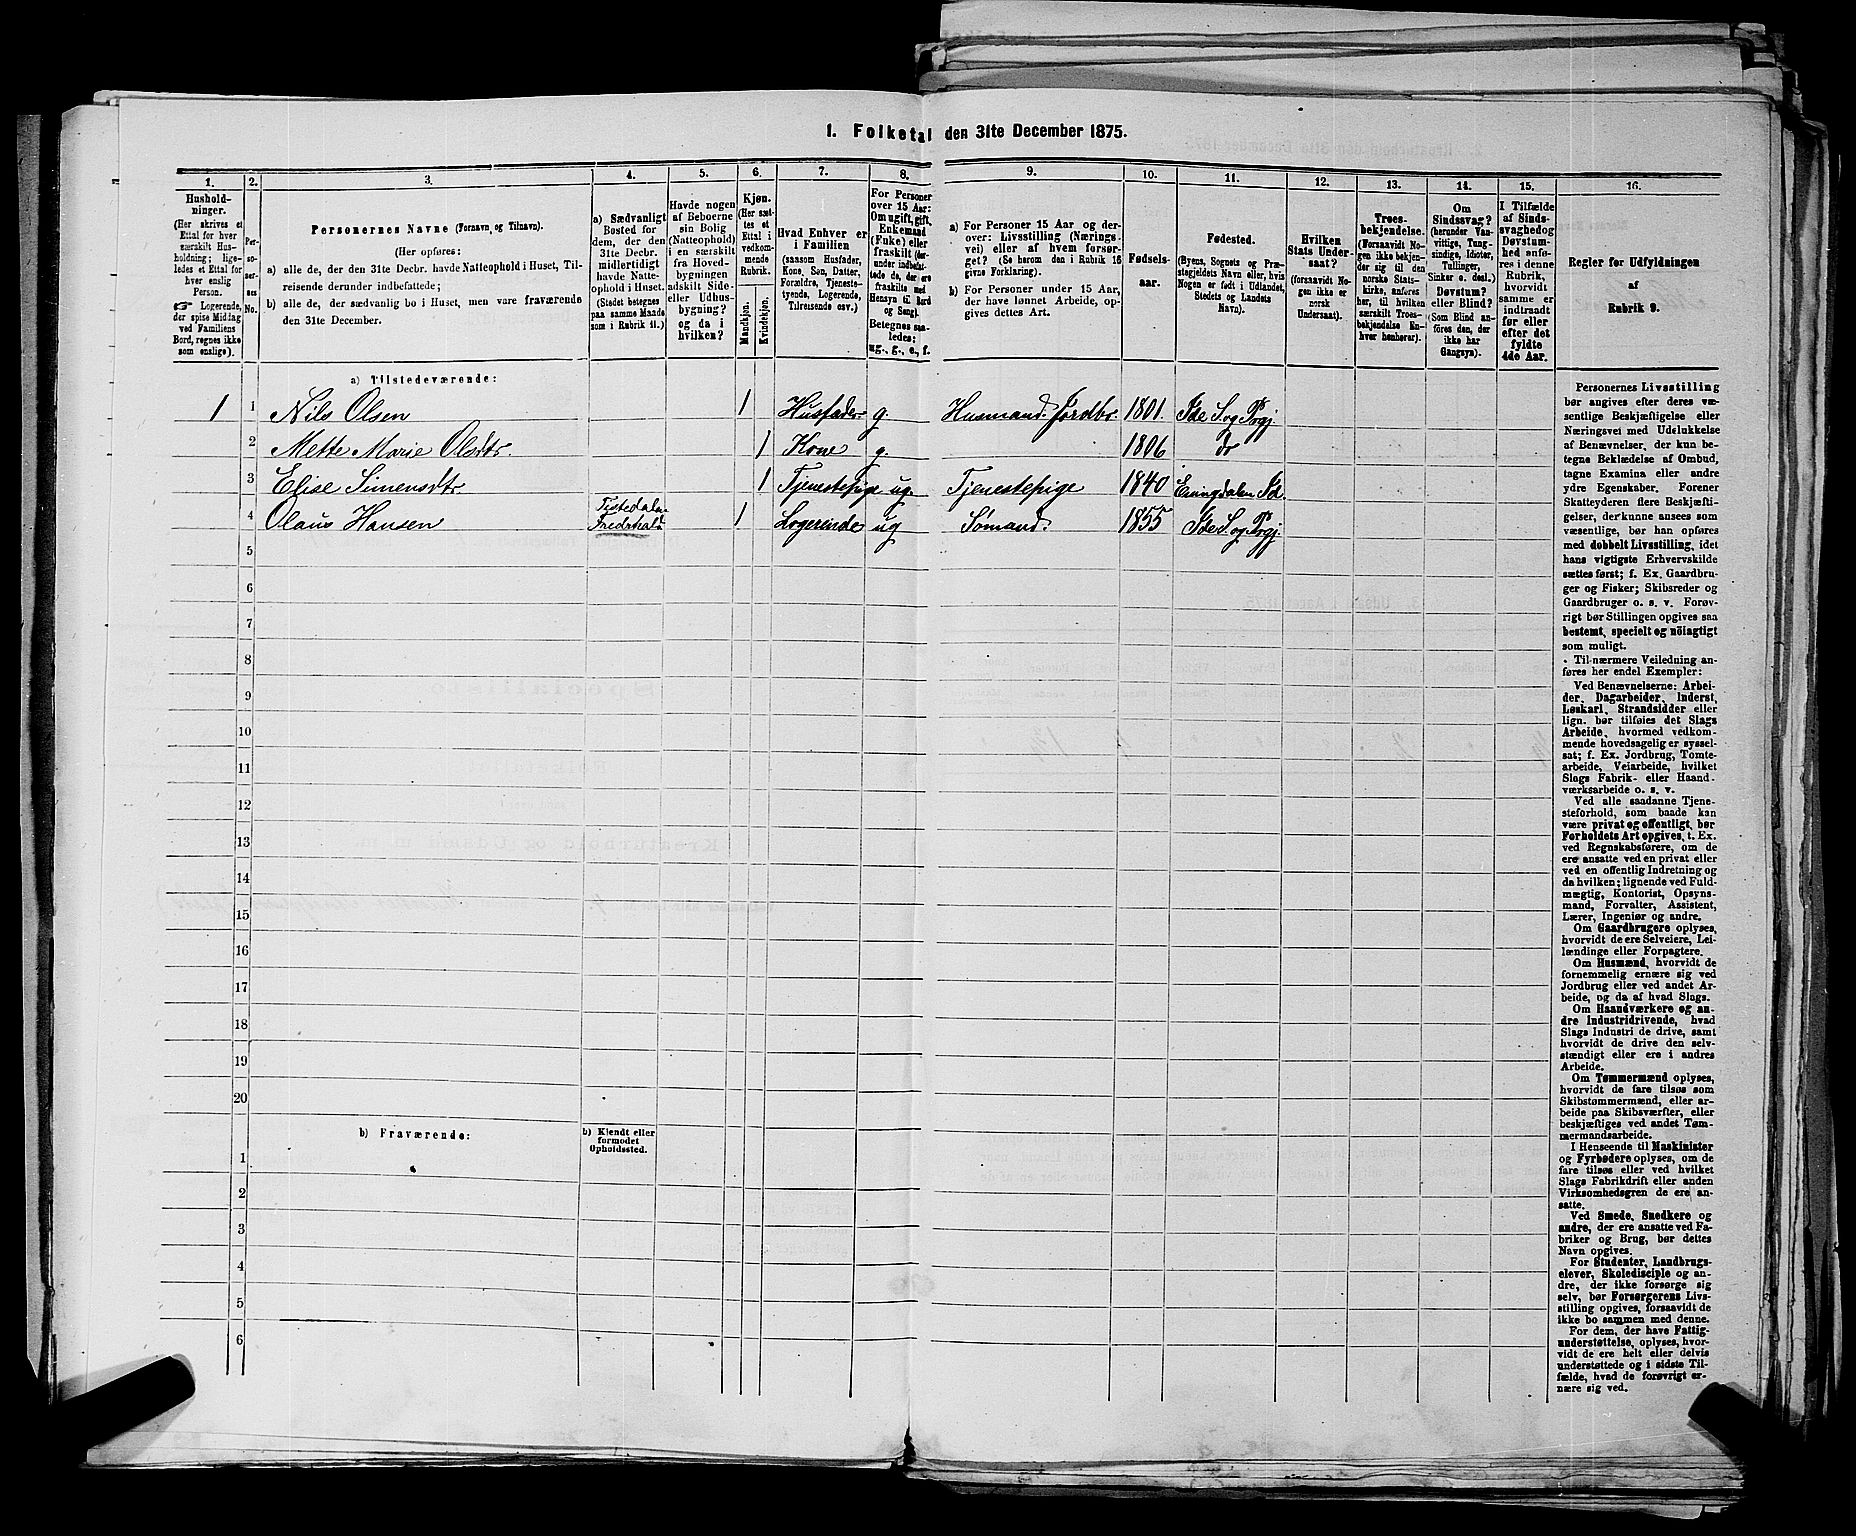 1. Folketal den 31te December 1875.
1.
2.
3.
4.
5.
6.
7.
8.
9.
10.
11.
12.
13.
14.
15.
16.
Hushold-
ninger.
(Her skrives et
Ettal for hver
særskilt Hus-
holdning; lige-
ledes et Ettal for
hver enslig
Person.
☞ Logerende,
der spise Middag
ved Familiens
Bord, regnes ikke
som enslige).
Per-
so-
ner-
nes
No.
Personernes Navne (Fornavn og Tilnavn).
(Her opføres:
a) alle de, der den 31te Decbr. havde Natteophold i Huset, Til-
reisende derunder indbefattede;
b) alle de, der sædvanlig bo i Huset, men vare fraværende
den 31te December.
a) Sædvanligt
Bosted for
dem, der den
31te Decbr.
midlertidigt
havde Natte-
ophold i Huset.
(Stedet betegnes
paa samme Maade
som i Rubrik 11.)
Havde nogen
af Beboerne
sin Bolig
(Natteophold)
i en særskilt
fra Hoved-
bygningen
adskilt Side-
eller Udhus-
bygning?
og da i
hvilken?
Kjøn.
(Her sæt-
tes et
Ettal i
vedkom-
mende
Rubrik.
Mandkjøn.
Kvindekjøn.
Hvad Enhver er
i Familien
(saasom Husfader,
Kone, Søn, Datter,
Forældre, Tjeneste-
tyende, Logerende,
Tilreisende osv.)
For Personer
over 15 Aar:
Om ugift, gift,
Enkemand
(Enke) eller
fraskilt (der-
under indbefat-
tede de, der ere
fraskilte med
Hensyn til Bord
og Seng).
Betegnes saa-
ledes:
ug., g., e., f.
a) For Personer 15 Aar og der-
over: Livsstilling (Nærings-
vei) eller af hvem forsør-
get? (Se herom den i Rubrik 16
givne Forklaring).
b) For Personer under 15 Aar,
der have lønnet Arbeide, op-
gives dettes Art.
Fødsels-
aar.
Fødested.
(Byens, Sognets og Præ-
stegjeldets Navn eller, hvis
Nogen er født i Udlandet,
Stedets og Landets
Navn).
Hvilken
Stats Under-
saat?
(forsaavidt No-
gen ikke er
norsk
Undersaat).
Troes-
bekjendelse.
(Forsaavidt No-
gen ikke bekjen-
der sig til den
norske Stats-
kirke, anføres
her, til hvilken
særskilt Troes-
bekjendelse En-
hver henhører).
Om
Sindssvag?
(herunder Van-
vittige, Tung-
sindige, Idioter,
Tullinger,
Sinker o. desl.)
Døvstum?
eller Blind?
(Som Blind an-
føres den, der
ikke har
Gangsyn).
I Tilfælde
af Sinds-
svaghed og
Døvstum-
hed anfø-
res i denne
Rubrik,
hvorvidt
samme er
indtraadt
før eller
efter det
fyldte
4de Aar.
Regler for Udfyldningen
af
Rubrik 9.
a) Tilstedeværende:
1 1 Nils Olsen 1 Husfader g. Husmand. Jordbr. 1801. Ide S. og Prgj.
2 Mette Marie Olsdtr. 1 Kone g. 1806 do
3 Elise Simensdtr. 1 Tjenestepige ug. Tjenestepige 1840 Eningdalen Id.
4 Olaus Hansen Tistedalen Fredrhald 1 Logerende ug Sømand. 1855 Ide S. og Prgj.
5
6
7
8
9
10
11
12
13
14
15
16
17
18
19
20
b) Fraværende:
b) Kjendt eller
formodet
Opholdssted.
1
2
3
4
5
6
Personernes Livsstilling
bør angives efter deres væ-
sentlige Beskjæftigelse eller
Næringsvei med Udelukkelse
af Benævnelser, der kun be-
tegne Beklædelse af Ombud,
tagne Examina eller andre
ydre Egenskaber. Forener
Skatteyderen flere Beskjæfti-
gelser, der kunne ansees som
væsentlige, bør han opføres
med dobbelt Livsstilling, idet
hans vigtigste Erhvervskilde
sættes først; f. Ex. Gaardbru-
ger og Fisker; Skibsreder og
Gaardbruger o. s. v. Forøv-
rigt bør Stillingen opgives saa
bestemt, specielt og nöiagtigt
som muligt.
Til nærmere Veiledning an-
føres her endel Exempler:
Ved Benævnelserne: Arbei-
der, Dagarbeider, Inderst,
Løskarl, Strandsidder eller
lign. bør tilføies det Slags
Arbeide, hvormed vedkom-
mende hovedsagelig er syssel-
sat; f. Ex. Jordbrug, Tomte-
arbeide, Veiarbeide, hvilket
Slags Fabrik- eller Haand-
værksarbeide o. s. v.
Ved alle saadanne Tjene-
steforhold, som baade kan
være privat og offentligt, bør
Forholdets Art opgives, t. Ex.
ved Regnskabsførere, om de
ere ansatte ved en privat eller
ved en offentlig Indretning og
da hvilken; lignende ved Fuld-
mægtig, Kontorist, Opsyns-
mand, Forvalter, Assistent,
Lærer, Ingeniør og andre.
Om Gaardbrugere oplyses,
hvorvidt de ere Selveiere, Lei-
lændinge eller Forpagtere.
Om Husmænd, hvorvidt de
fornemmelig ernære sig ved
Jordbrug eller ved andet Ar-
beide, og da af hvad Slags.
Om Haandværkere og an-
dre Industridrivende, hvad
Slags Industri de drive, samt
hvorvidt de drive den selv-
stændigt eller ere i andres
Arbeide.
Om Tømmermænd oplyses,
hvorvidt de fare tilsøs som
Skibstømmermænd, eller ar-
beide paa Skibsværfter, eller
beskjæftiges ved andet Tøm-
mermandsarbeide.
I Henseende til Maskinister
og Fyrbødere oplyses, om de
fare tilsøs eller ved hvilket
Slags Fabrikdrift eller anden
Virksomhedsgren de ere an-
satte.
Ved Smede, Snedkere og
andre, der ere ansatte ved Fa-
briker og Brug, bør dettes
Navn opgives.
For Studenter, Landbrugs-
elever, Skoledisciple og an-
dre, der ikke forsørge sig
selv, bør Forsørgerens Livs-
stilling opgives, forsaavidt de
ikke bo sammen med denne.
For dem, der have Fattig-
understøttelse, oplyses, hvor-
vidt de ere helt eller delvis
understøttede og i sidste Til-
fælde, hvad de forøvrigt er-
nære sig ved.